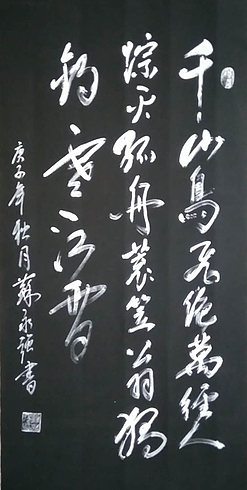 千山鳥飛絕萬徑人
踪灭孤舟蓑笠翁獨
釣寒江雪
庚子年秋月蘇永强書